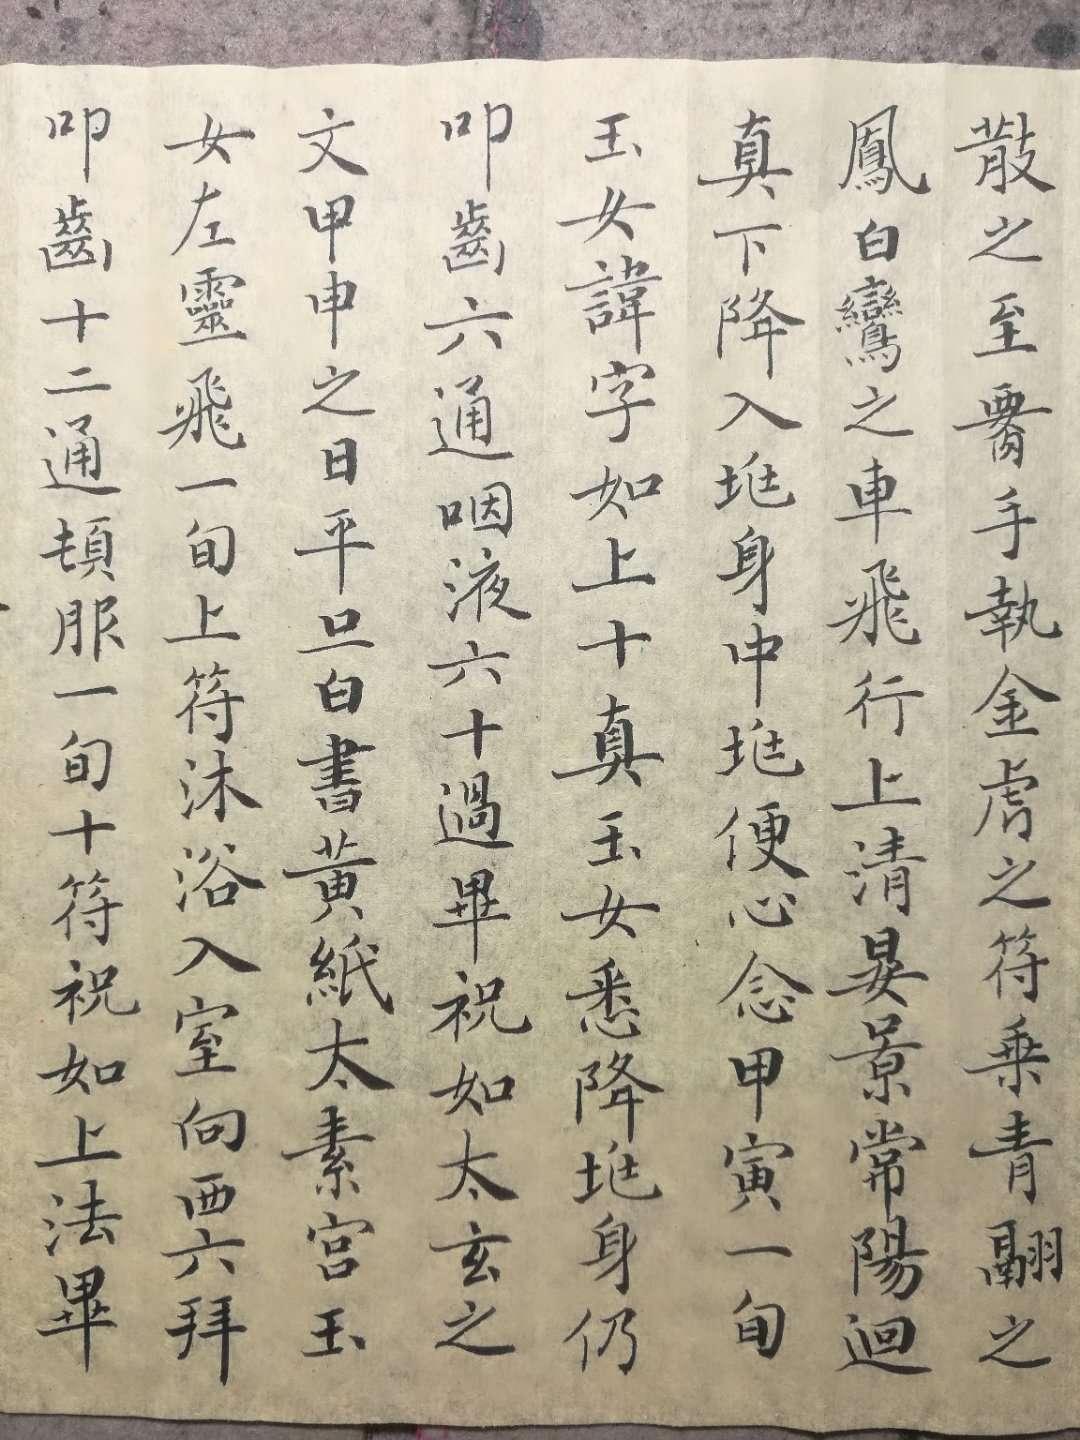 散之至腰手執金虎之符乘青翮之
鳳白鸞之車飛行上清晏景常陽迴
真下降入兆身中兆便心念甲寅一旬
玉女諱字如上十真玉女悉降兆身仍
叩齒六通咽液六十過畢祝如太玄之
文甲申之日平旦白書黃紙太素宮玉
女左靈飛一旬上符沐浴入室向西六拜
叩齒十二通頓服一旬十符祝如上法畢